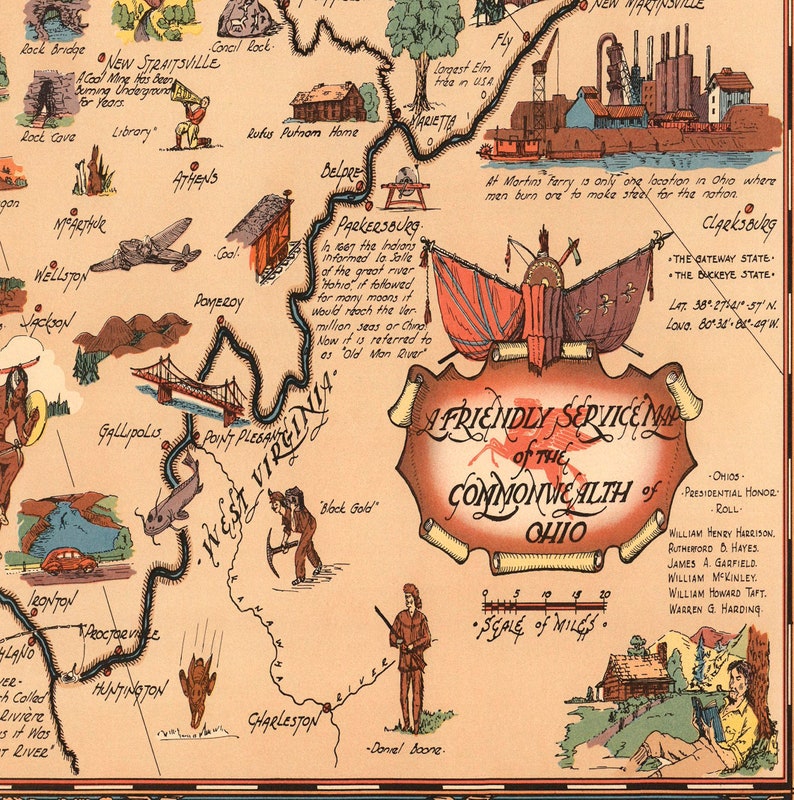 NEW MARTINSVILLE
Rock Bridge
Concil Rock.
FLY
NEW STRAITSVILLE
A Coal Mine Has Been
Burning Underground
for Years.
Largest Elm
tree in U.S.A.
Rock Cave
Library"
Rufus Putnam Home
MARIETTA
OHIO
ATHENS
BELPRE
At Martins Ferry is only one location in Ohio where
men burn ore to make steel for the nation.
McARTHUR
PARKERSBURG
CLARKSBURG
Coal
In 1667 the Indians
informed La Salle
of the great river
"Hohio", if followed
for many moons it
would reach the Ver-
million seas or China.
Now it is referred to
as "Old Man River"
• THE GATEWAY STATE •
• THE BUCKEYE STATE •
WELLSTON
POMEROY
LAT. 38°-27'-41°-57' N.
LONG. 80°-34'-84°-49' W.
JACKSON
A FRIENDLY SERVICE MAP
OF THE
COMMONWEALTH of
OHIO
GALLIPOLIS
POINT PLESANT
• WEST VIRGINIA •
"Black Gold"
- OHIOS -
- PRESIDENTIAL HONOR -
- ROLL -
WILLIAM HENRY HARRISON.
RUTHERFORD B. HAYES.
JAMES A. GARFIELD.
WILLIAM McKINLEY.
WILLIAM HOWARD TAFT.
WARREN G. HARDING.
0 5 10 15 20
• SCALE of MILES •
IRONTON
PROCTORVILLE
HUNTINGTON
KANAWHA RIVER
CHARLESTON
- Daniel Boone -